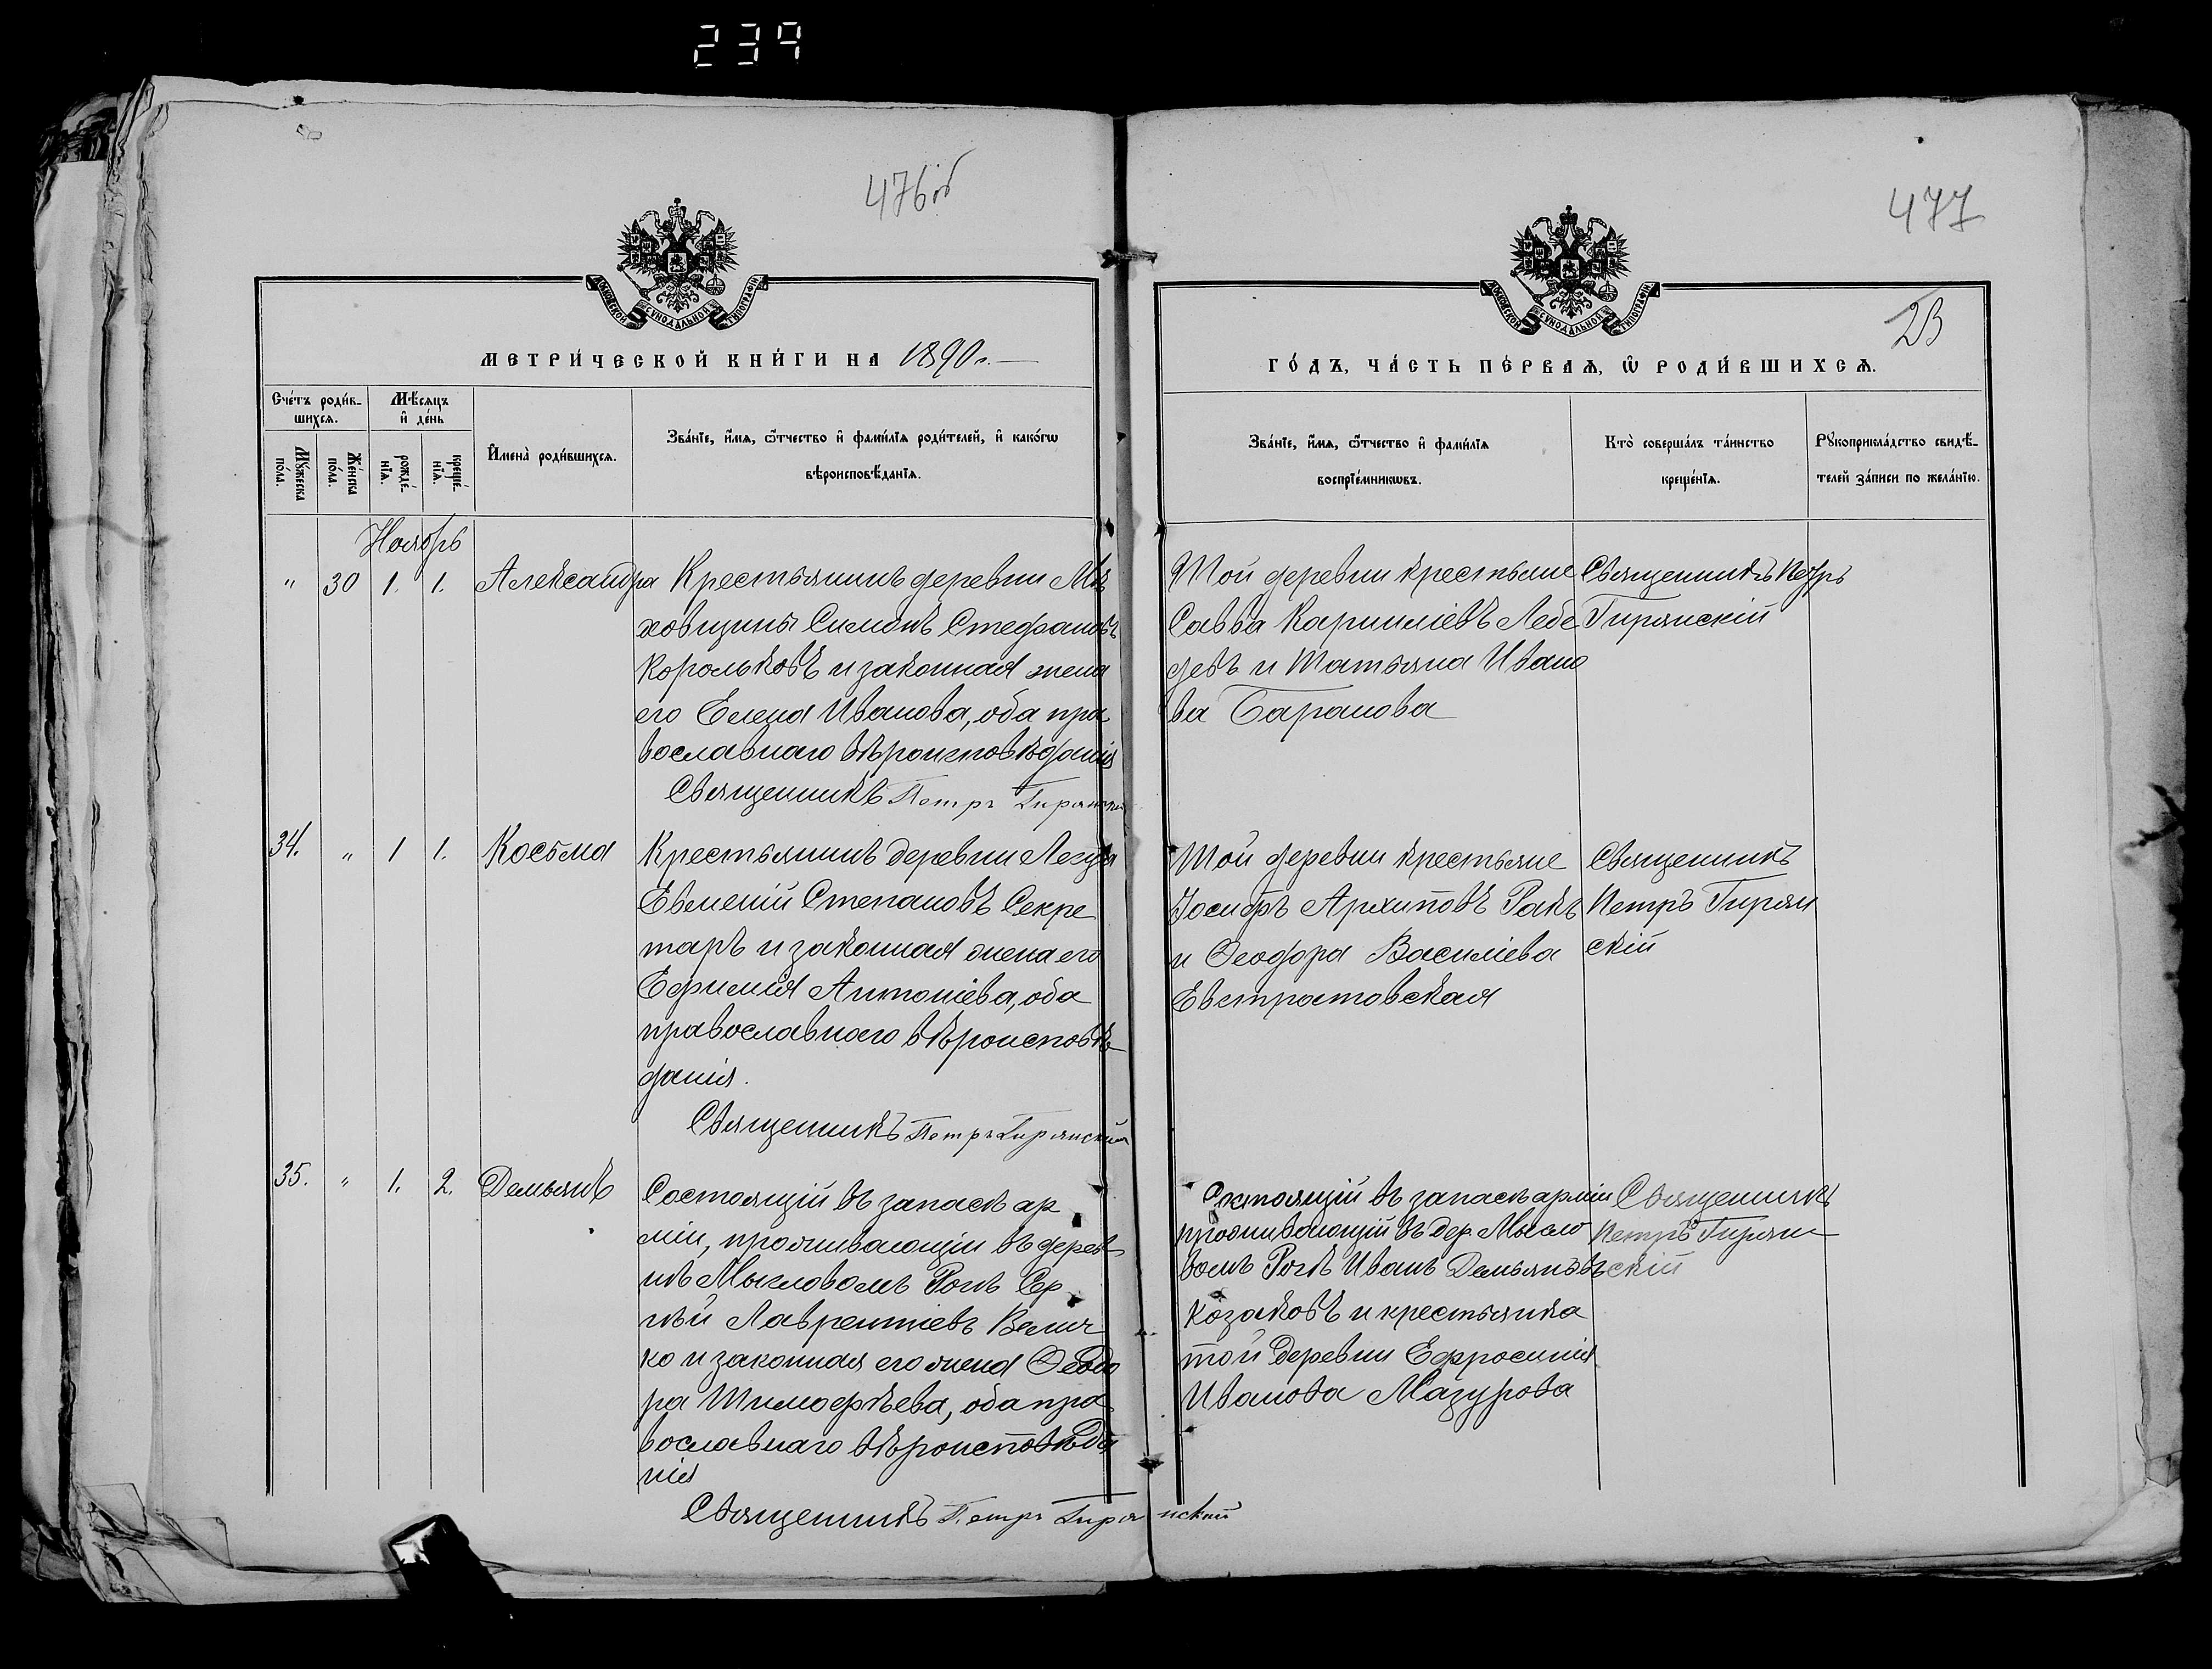 239
476об
477
МОСКОВСКОЙ СУНОДАЛЬНОЙ ТИПОГРАФІИ
МОСКОВСКОЙ СУНОДАЛЬНОЙ ТИПОГРАФІИ
23
МЕТРИ́ЧЕСКОЙ КНИ́ГИ НА 1890 г.
ГО́ДЪ, ЧА́СТЬ ПЕ́РВАѦ, Ѡ РОДИ́ВШИХСѦ.
Сче́тъ роди́в-
шихсѧ.
Мꙋ́жеска по́ла.
Же́нска по́ла.
Мѣ́сѧцъ
и҆ де́нь
рожде́-
нїѧ.
креще́-
нїѧ.
И҆мена̀ роди́вшихсѧ.
Зва́нїе, и҆́мѧ, ѻ҆́тчество и҆ фами́лїѧ роди́телей, и҆ како́гѡ
вѣроисповѣ́данїѧ.
Зва́нїе, и҆́мѧ, ѻ҆́тчество и҆ фами́лїѧ
воспрїе́мникѡвъ.
Кто̀ соверша́лъ та́инство
креще́нїѧ.
Рꙋкоприкла́дство свидѣ́-
телей за́писи по жела́нїю.
Ноябрь
" 30 1. 1. Александра
Крестьянинъ деревни Мѣ
ховщины Симонъ Стефановъ
Корольковъ и законная жена
его Елена Иванова, оба пра
вославнаго вѣроисповѣданія
Священникъ Петръ Гирянскій
Той деревни крестьяне
Савва Карниліевъ Лебе
девъ и Татьяна Ивано
ва Баранова
Священникъ Петръ
Гирянскій
34. " 1 1. Косьма
Крестьянинъ деревни
Евменій Степановъ Секре
таръ и законная жена его
Ефимія Антоніева, оба
православнаго вѣроисповѣ
данія.
Священникъ Петръ Гирянскій
Той деревни крестьяне
Іосифъ Архиповъ Ракъ
и Ѳеодора Василіева
Евстратовская
Священникъ
Петръ Гирян
скій
35. " 1. 2. Демьянъ
Состоящій въ запасѣ ар
міи, проживающіи въ дерев
нѣ Мысловомъ Рогѣ Сер
гѣй Лаврентіевъ Велич
ко и законная его жена Ѳеодо
ра Тимофѣева, оба пра
вославнаго вѣроисповѣда
нія
Священникъ Петръ Гирянскій
Состоящій въ запасѣ арміи
проживающій въ дер. Мысло
вомъ Рогѣ Иванъ Демьяновъ
Козаковъ и крестьянка
той деревни Ефросинія
Иванова Мазурова
Священникъ
Петръ Гирян
скій